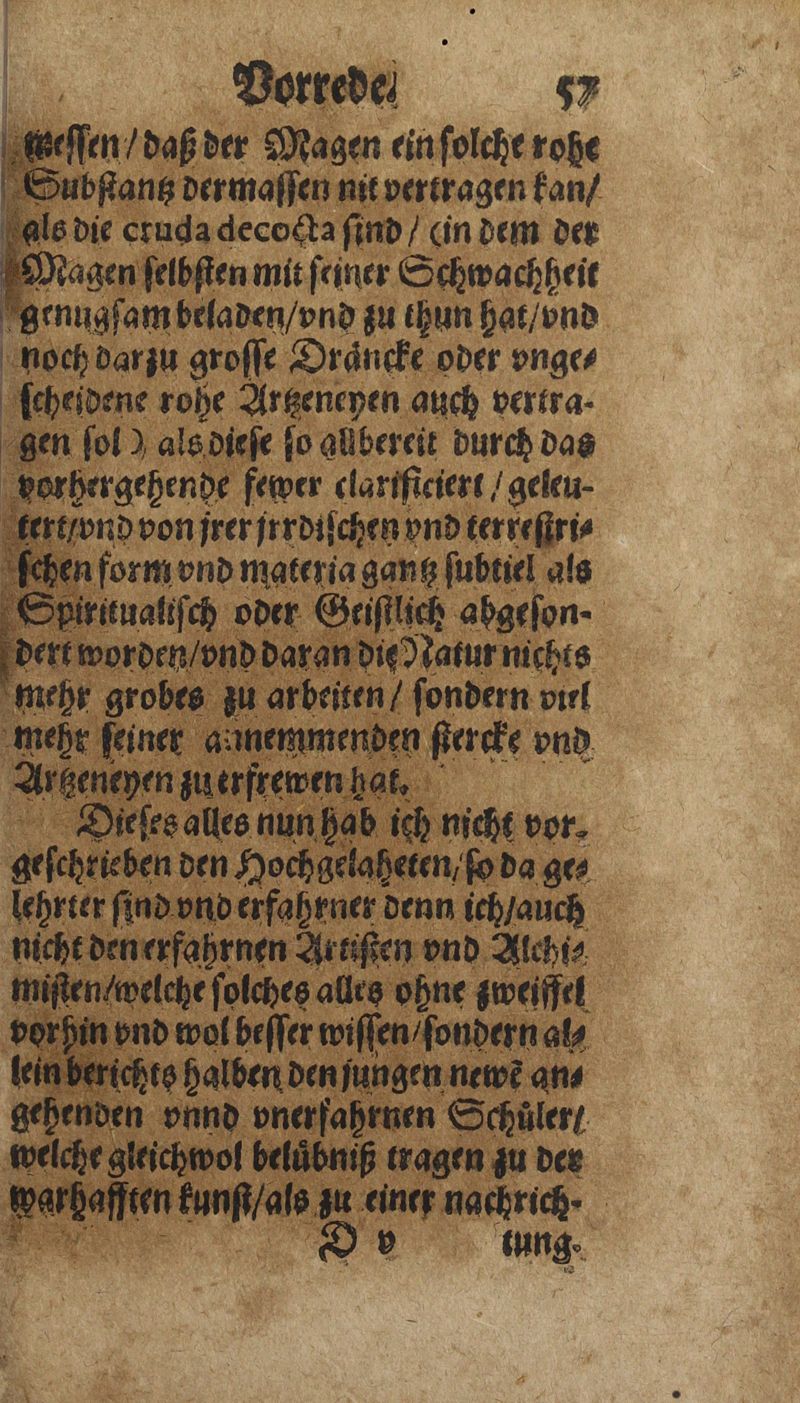 Vorrede. 57
wessen / daß der Magen ein solche rohe
Substantz dermassen nit vertragen kan /
als die cruda decocta sind / (in dem der
Magen selbsten mit seiner Schwachheit
genugsam beladen / vnd zu thun hat / vnd
noch darzu grosse Dräncke oder vnge-
scheidene rohe Artzeneyen auch vertra-
gen sol) als diese so allbereit durch das
vorhergehende fewer clarificiert / geleu-
tert / vnd von jrer jrrdischen vnd terrestri-
schen form vnd materia gantz subtiel als
Spiritualisch oder Geistlich abgeson-
dert worden / vnd daran die Natur nichts
mehr grobes zu arbeiten / sondern viel
mehr seiner annemmenden stercke vnd
Artzeneyen zu erfrewen hat.
Dieses alles nun hab ich nicht vor-
geschrieben den Hochgelaheten / so da ge-
lehrter sind vnd erfahrner denn ich / auch
nicht den erfahrnen Artisten vnd Alchi-
misten / welche solches alles ohne zweiffel
vorhin vnd wol besser wissen / sondern al-
lein berichts halben den jungen newē an-
gehenden vnnd vnerfahrnen Schůler /
welche gleichwol belůbniß tragen zu der
warhafften kunst / als zu einer nachrich-
D v tung.